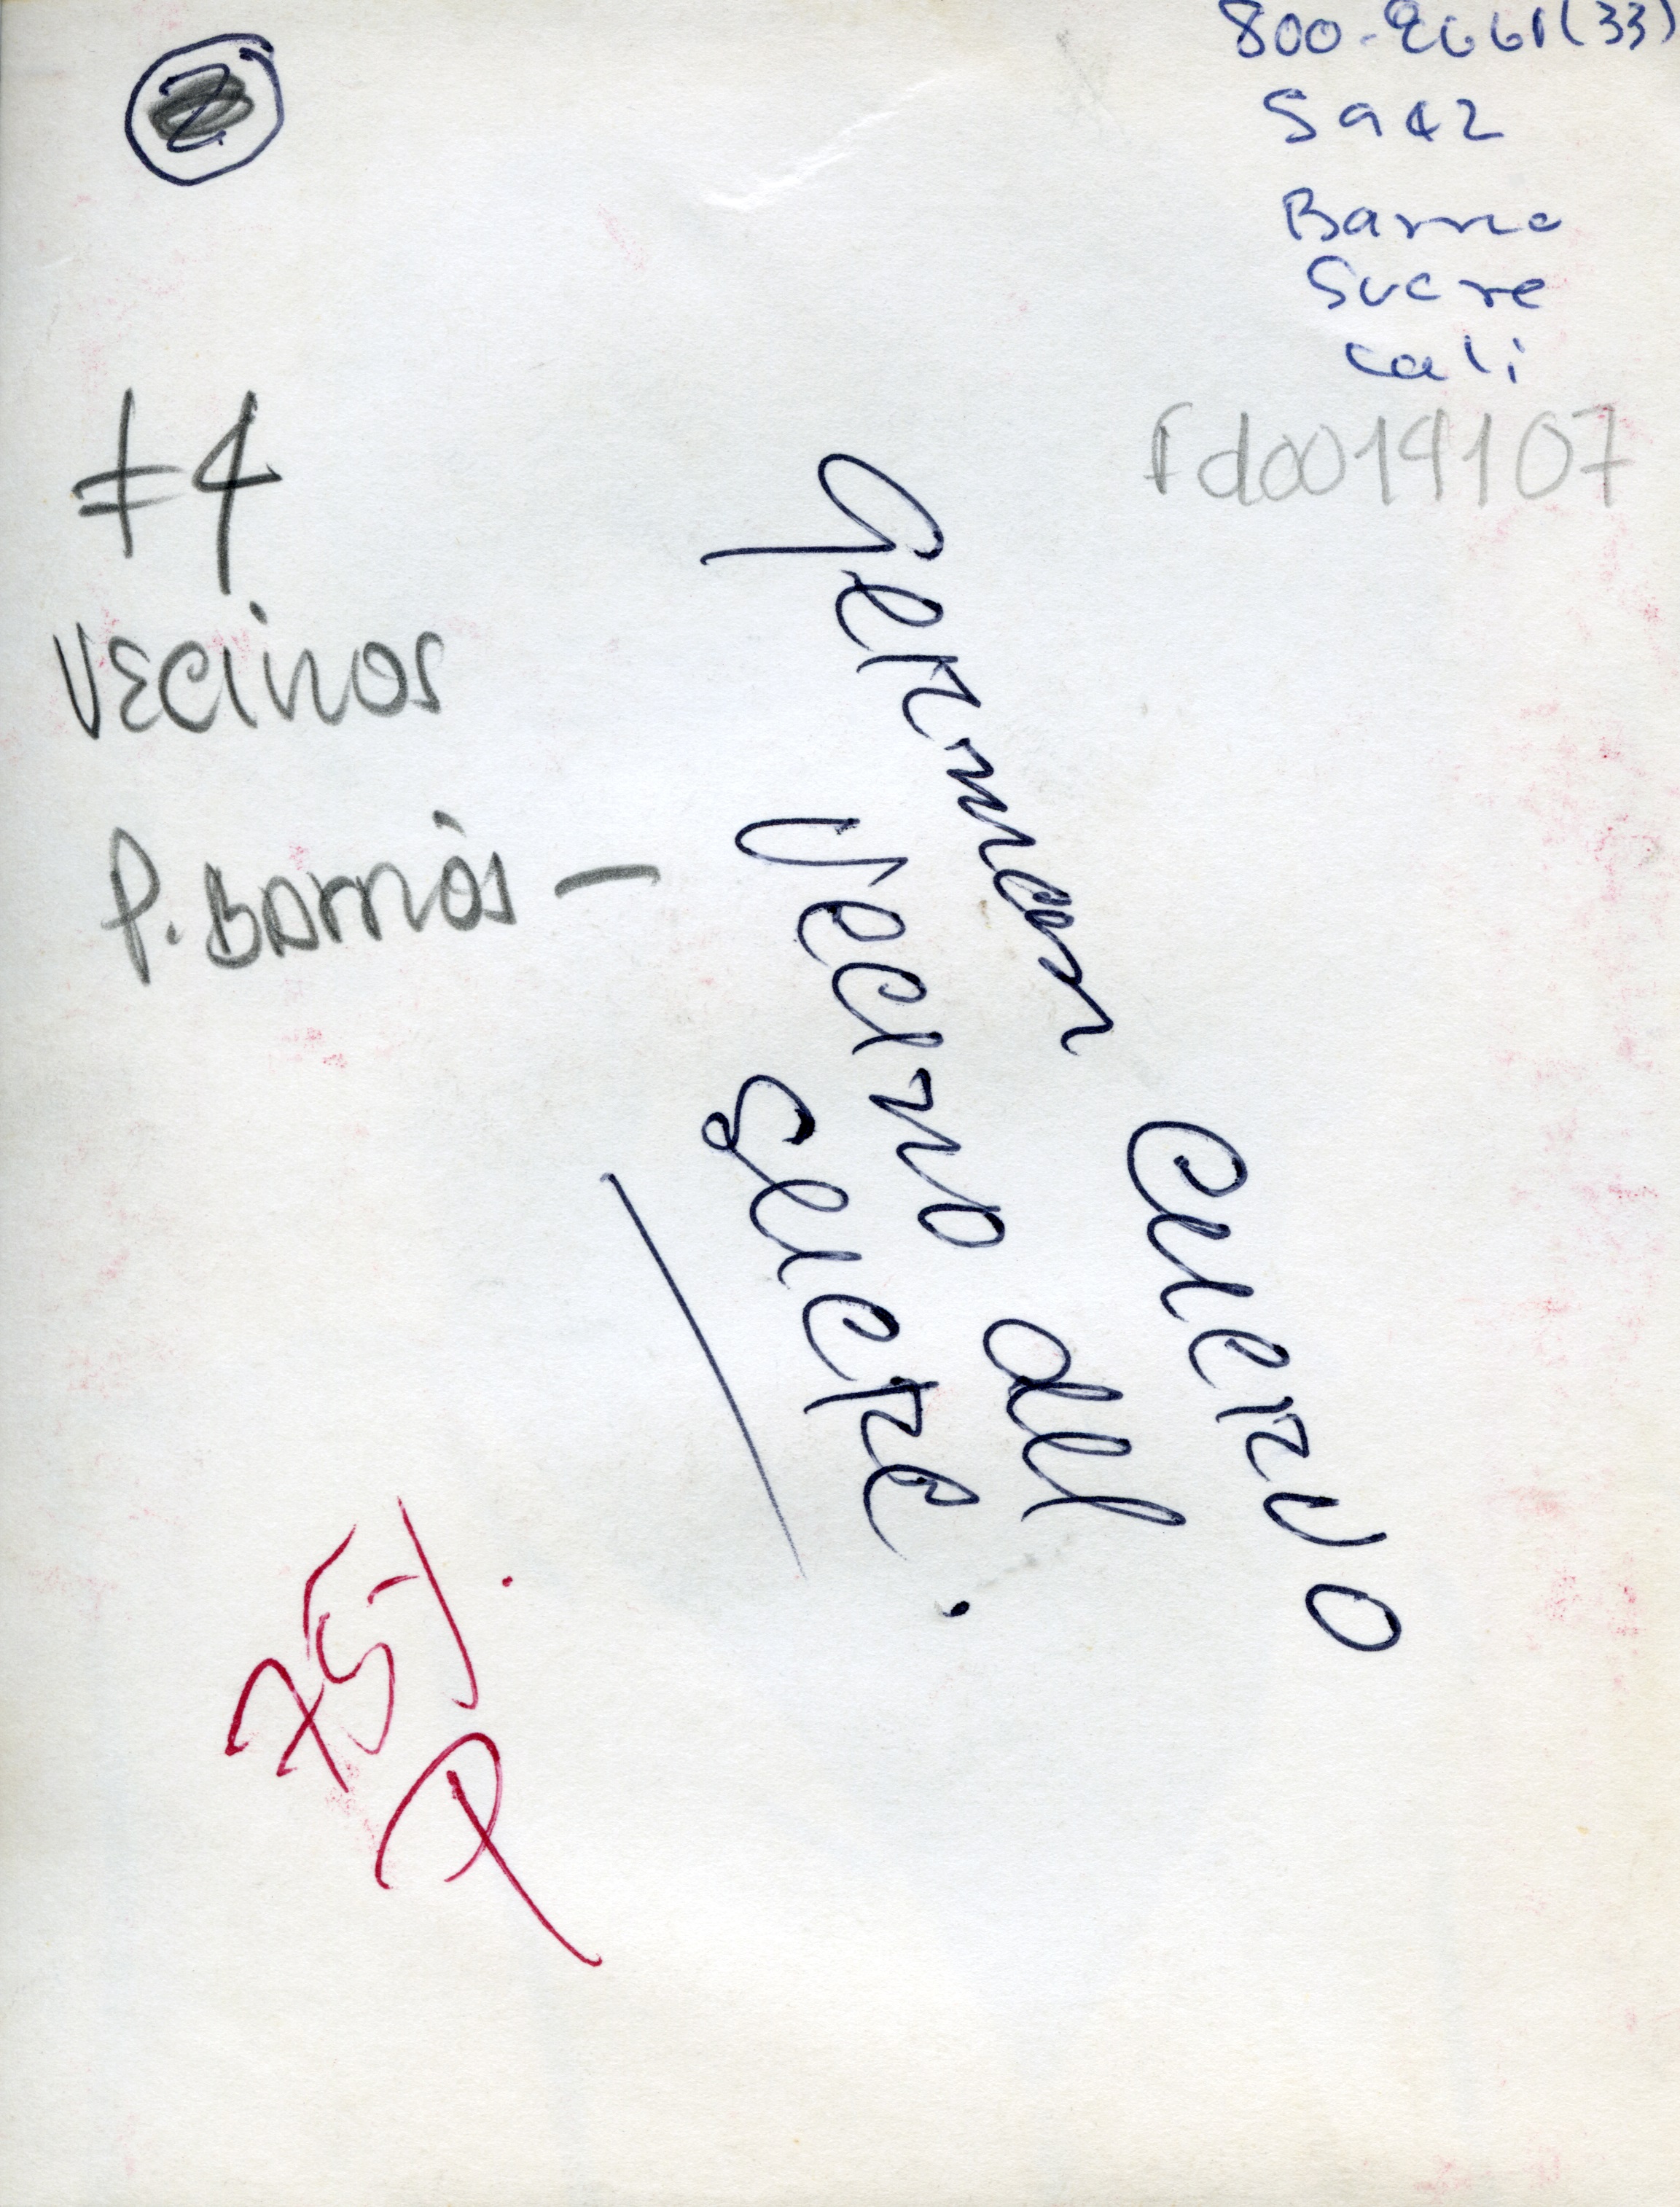 2
5942
Barrio
Sucre
Cali
fd0019107
#4
Vecinos
P. Barrios —
German Cuervo
Vecino del
Sucre.
75%.
P